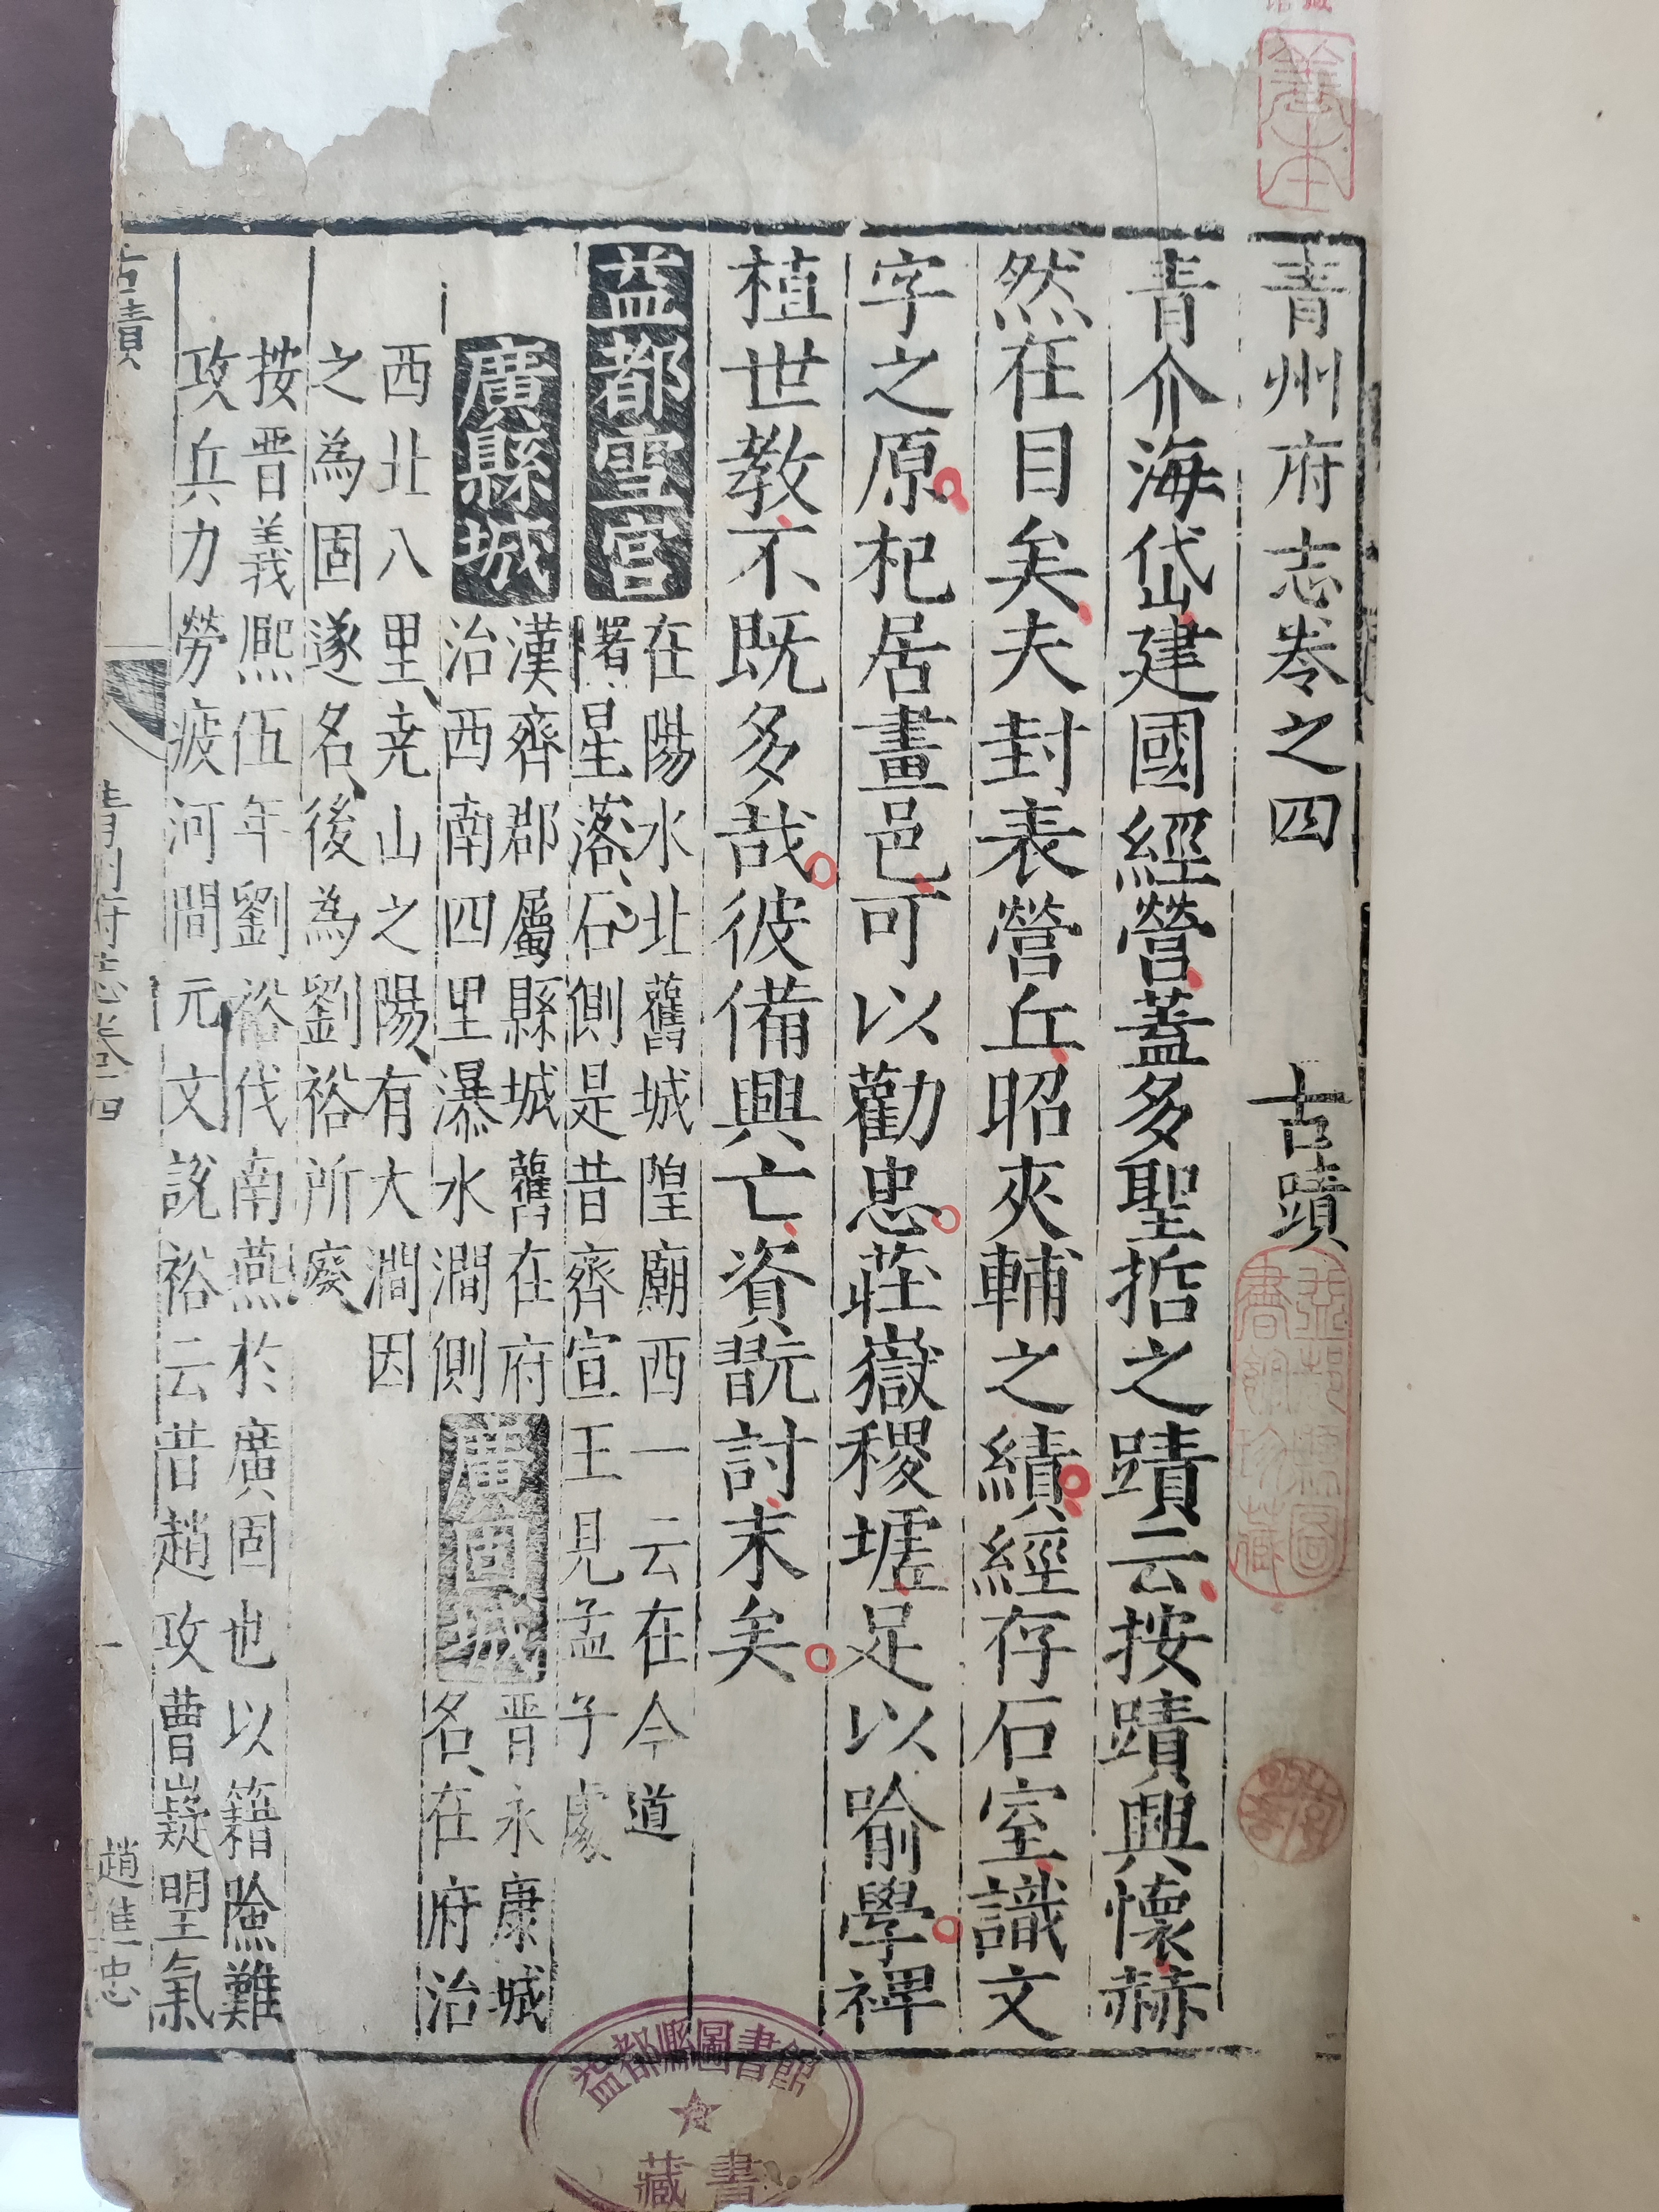 青州府志卷之四 古蹟
青介海岱建國經營蓋多聖哲之蹟云按蹟興懷赫
然在目矣夫封表營丘昭夾輔之績經存石室識文
字之原杞居畫邑可以勸忠莊嶽稷堐足以喻學裨
植世教不既多哉彼備興亡資翫討末矣
益都雪宮
在陽水北舊城隍廟西一云在今道
曙星落石側是昔齊宣王見孟子處
廣縣城
漢齊郡屬縣城舊在府
治西南四里瀑水澗側
廣固城
晋永康城
名在府治
西北八里堯山之陽有大澗因
之為固遂名後為劉裕所廢
按晋義熈伍年劉裕伐南燕於廣固也以籍險難
攻兵力勞疲河間元文説裕云昔趙攻曹嶷望氣
古蹟
青州府志卷四
一
趙進忠
善本
益都縣圖
書館珍藏
益都縣圖書館
藏書